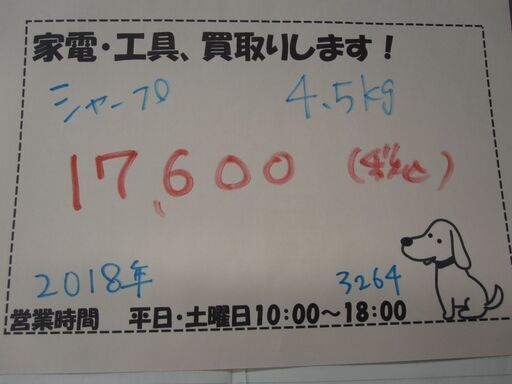 家電・工具、買取りします！
シャープ 4.5kg
17,600 (税込)
2018年 3264
営業時間 平日・土曜日10：00～18：00